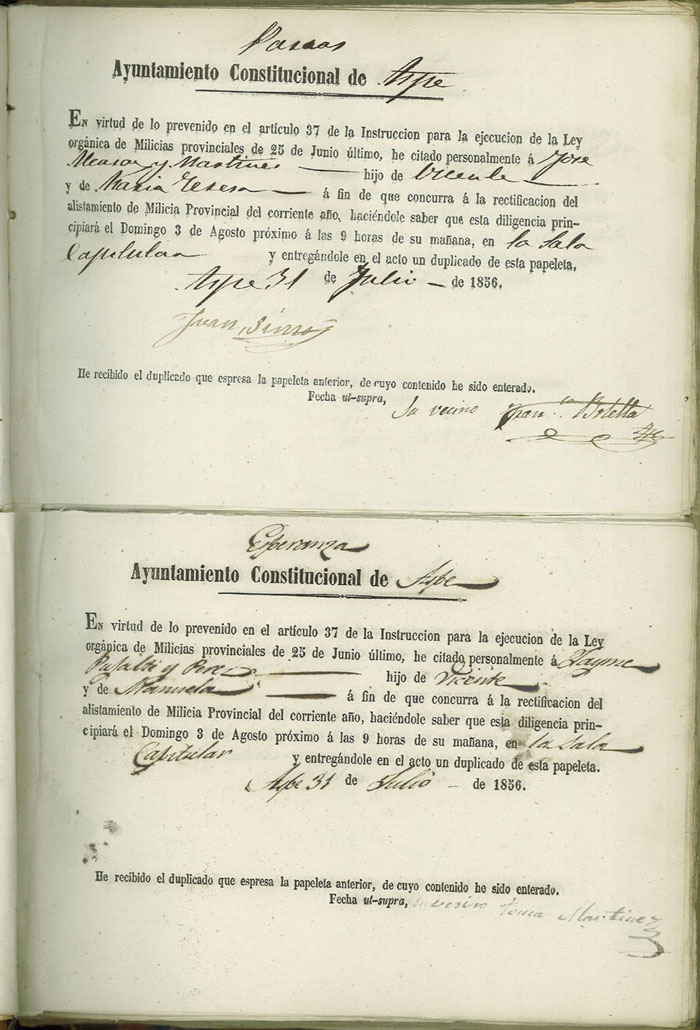 Ayuntamiento Constitucional de Aspe
En virtud de lo prevenido en el artículo 37 de la Instruccion para la ejecucion de la Ley
orgánica de Milicias provinciales de 25 de Junio último, he citado personalmente á José
y Martines hijo de Vicente
y de Maria Teresa á fin de que concurra á la rectificacion del
alistamento de Milicia Provincial del corriente año, haciéndole saber que esta diligencia prin-
cipiará el Domingo 3 de Agosto próximo á las 9 horas de su mañana, en la Sala
Capitular y entregándole en el acto un duplicado de esta papeleta.
Aspe 31 de Julio de 1856.
Juan
He recibido el duplicado que espresa la papeleta anterior, de cuyo contenido he sido enterado.
Fecha ut-supra, Su vecino Fran.co Botella
Esperanza
Ayuntamiento Constitucional de Aspe
En virtud de lo prevenido en el artículo 37 de la Instruccion para la ejecucion de la Ley
orgánica de Milicias provinciales de 25 de Junio último, he citado personalmente á Jayme
y hijo de Vicente
y de Manuela á fin de que concurra á la rectificacion del
alistamento de Milicia Provincial del corriente año, haciéndole saber que esta diligencia prin-
cipiará el Domingo 3 de Agosto próximo á las 9 horas de su mañana, en la Sala
Capitular y entregándole en el acto un duplicado de esta papeleta.
Aspe 31 de Julio de 1856.
He recibido el duplicado que espresa la papeleta anterior, de cuyo contenido he sido enterado.
Fecha ut-supra, su vesino Martinez